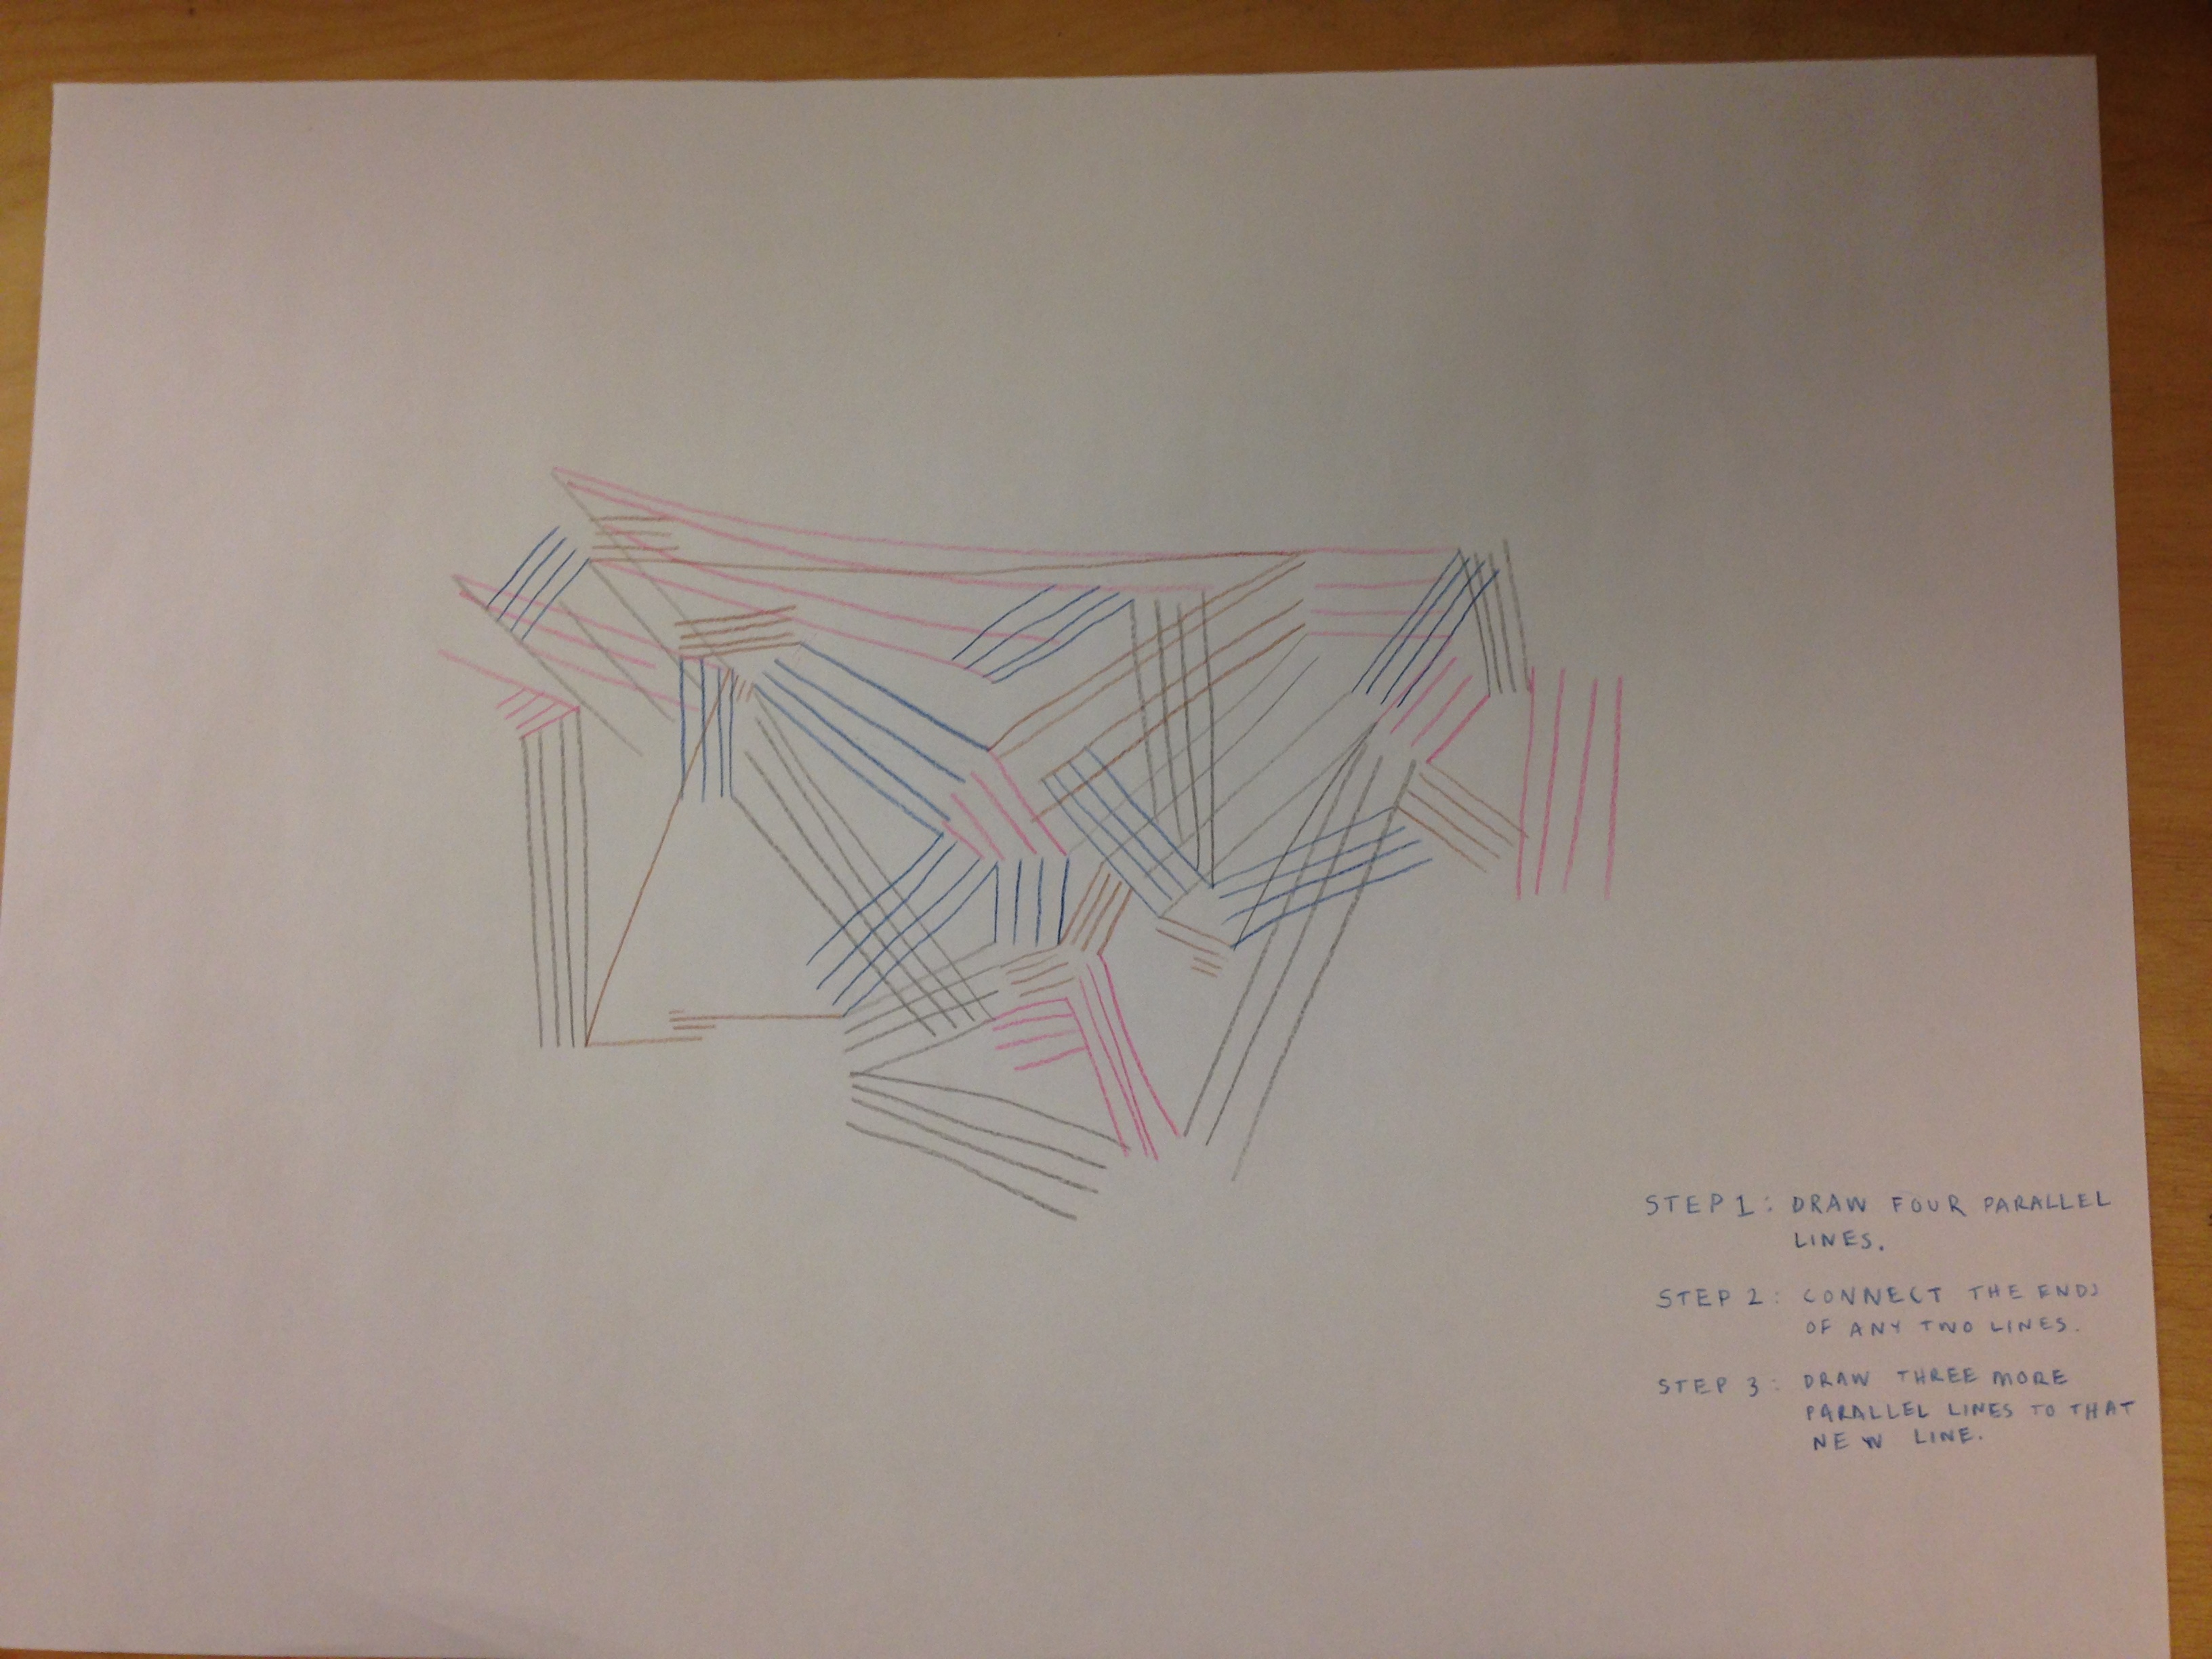 STEP 1: DRAW FOUR PARALLEL
LINES.
STEP 2: CONNECT THE ENDS
OF ANY TWO LINES.
STEP 3: DRAW THREE MORE
PARALLEL LINES TO THAT
NEW LINE.